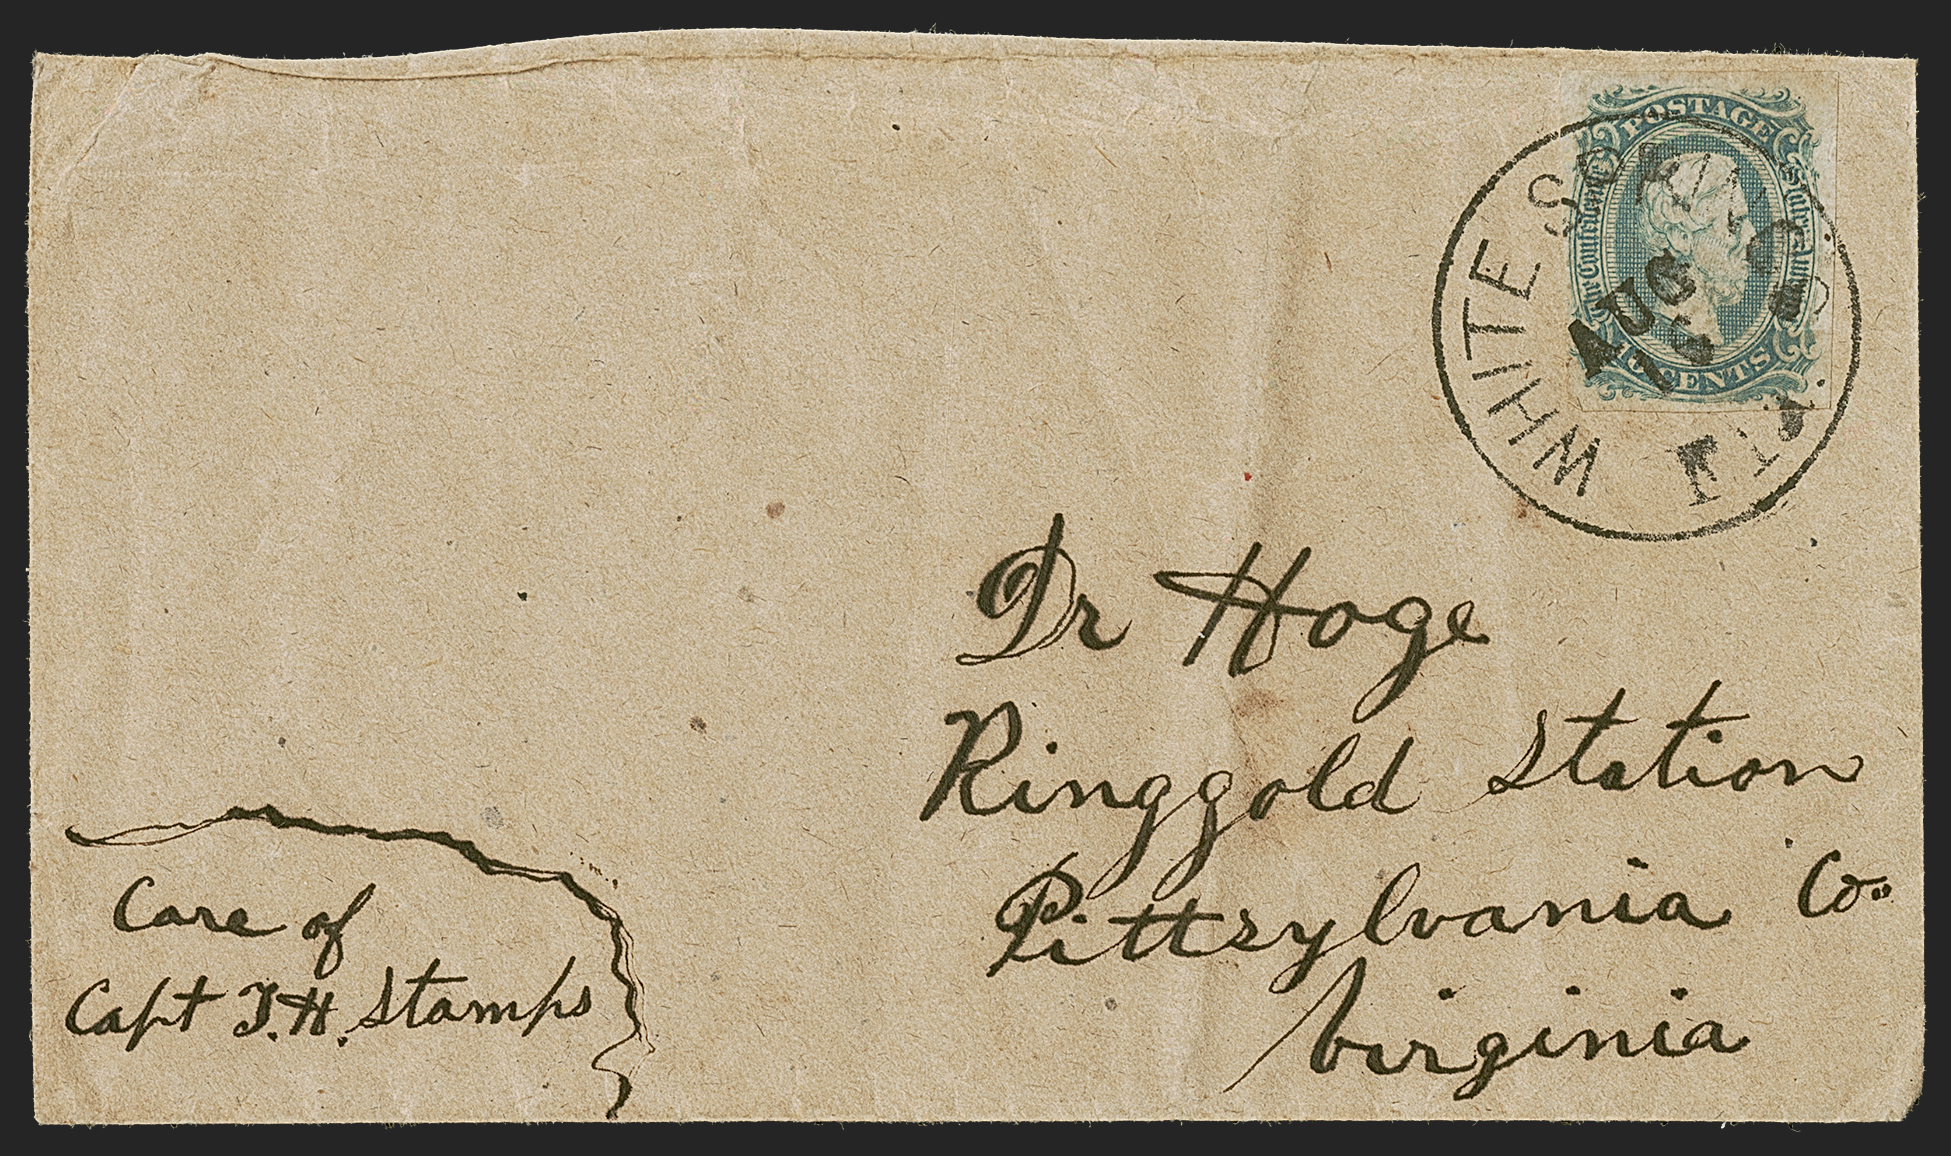 POSTAGE
The Confederate States of America
10 CENTS
WHITE SPRINGS
AUG
FLA.
Dr Hoge
Ringgold Station
Pittsylvania Co.
Virginia
Care of
Capt T.H. Stamps